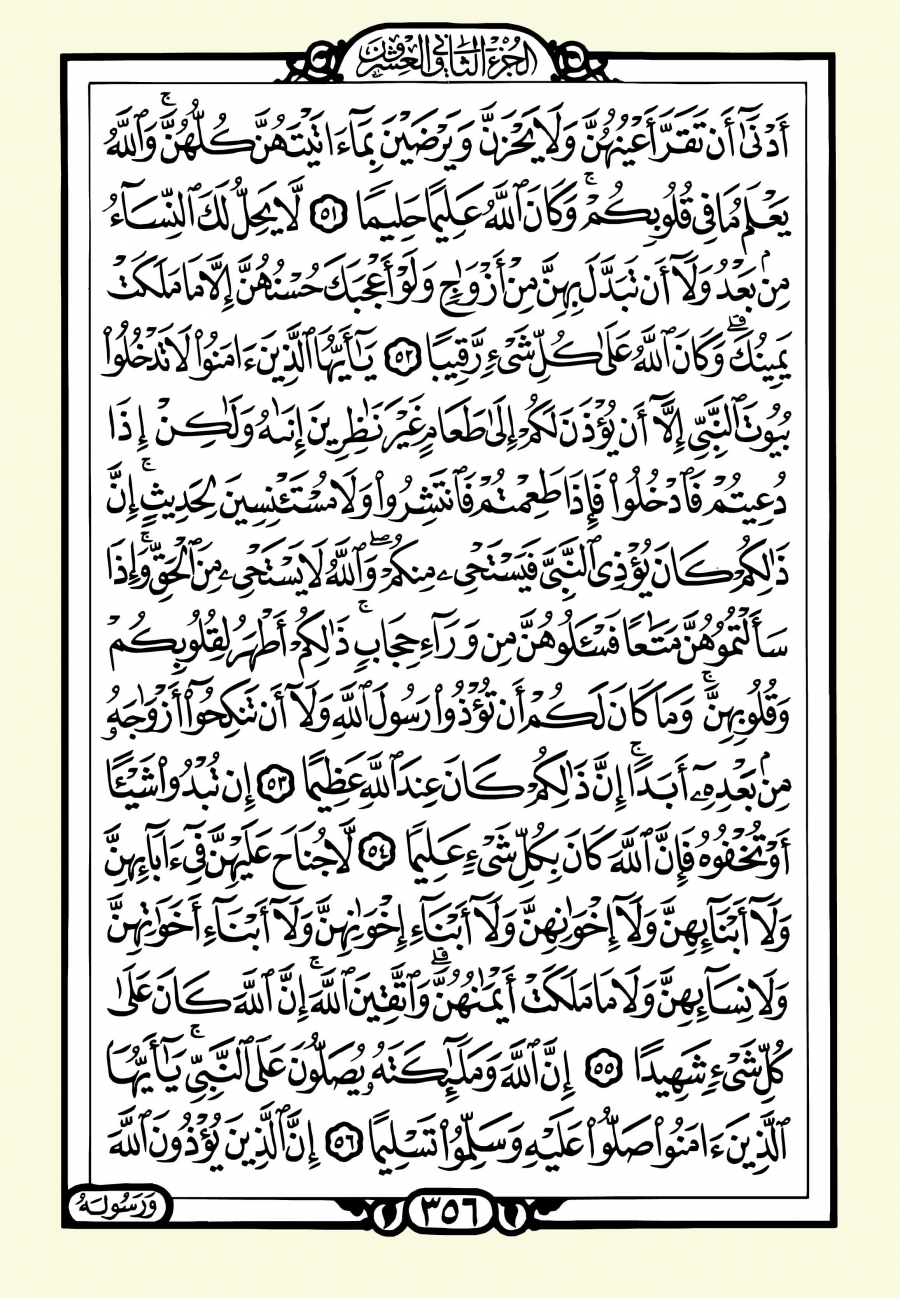 الجزء الثاني والعشرون
أَدْنَىٰٓ أَن تَقَرَّ أَعْيُنُهُنَّ وَلَا يَحْزَنَّ وَيَرْضَيْنَ بِمَآ ءَاتَيْتَهُنَّ كُلُّهُنَّ ۚ وَٱللَّهُ
يَعْلَمُ مَا فِى قُلُوبِكُمْ ۚ وَكَانَ ٱللَّهُ عَلِيمًا حَلِيمًا ٥١ لَّا يَحِلُّ لَكَ ٱلنِّسَآءُ
مِنۢ بَعْدُ وَلَآ أَن تَبَدَّلَ بِهِنَّ مِنْ أَزْوَٰجٍ وَلَوْ أَعْجَبَكَ حُسْنُهُنَّ إِلَّا مَا مَلَكَتْ
يَمِينُكَ ۗ وَكَانَ ٱللَّهُ عَلَىٰ كُلِّ شَىْءٍ رَّقِيبًا ٥٢ يَٰٓأَيُّهَا ٱلَّذِينَ ءَامَنُوا۟ لَا تَدْخُلُوا۟
بُيُوتَ ٱلنَّبِىِّ إِلَّآ أَن يُؤْذَنَ لَكُمْ إِلَىٰ طَعَامٍ غَيْرَ نَٰظِرِينَ إِنَىٰهُ وَلَٰكِنْ إِذَا
دُعِيتُمْ فَٱدْخُلُوا۟ فَإِذَا طَعِمْتُمْ فَٱنتَشِرُوا۟ وَلَا مُسْتَـْٔنِسِينَ لِحَدِيثٍ ۚ إِنَّ
ذَٰلِكُمْ كَانَ يُؤْذِى ٱلنَّبِىَّ فَيَسْتَحْىِۦ مِنكُمْ ۖ وَٱللَّهُ لَا يَسْتَحْىِۦ مِنَ ٱلْحَقِّ ۚ وَإِذَا
سَأَلْتُمُوهُنَّ مَتَٰعًا فَسْـَٔلُوهُنَّ مِن وَرَآءِ حِجَابٍ ۚ ذَٰلِكُمْ أَطْهَرُ لِقُلُوبِكُمْ
وَقُلُوبِهِنَّ ۚ وَمَا كَانَ لَكُمْ أَن تُؤْذُوا۟ رَسُولَ ٱللَّهِ وَلَآ أَن تَنكِحُوٓا۟ أَزْوَٰجَهُۥ
مِنۢ بَعْدِهِۦٓ أَبَدًا ۚ إِنَّ ذَٰلِكُمْ كَانَ عِندَ ٱللَّهِ عَظِيمًا ٥٣ إِن تُبْدُوا۟ شَيْـًٔا
أَوْ تُخْفُوهُ فَإِنَّ ٱللَّهَ كَانَ بِكُلِّ شَىْءٍ عَلِيمًا ٥٤ لَّا جُنَاحَ عَلَيْهِنَّ فِىٓ ءَابَآئِهِنَّ
وَلَآ أَبْنَآئِهِنَّ وَلَآ إِخْوَٰنِهِنَّ وَلَآ أَبْنَآءِ إِخْوَٰنِهِنَّ وَلَآ أَبْنَآءِ أَخَوَٰتِهِنَّ
وَلَا نِسَآئِهِنَّ وَلَا مَا مَلَكَتْ أَيْمَٰنُهُنَّ ۗ وَٱتَّقِينَ ٱللَّهَ ۚ إِنَّ ٱللَّهَ كَانَ عَلَىٰ
كُلِّ شَىْءٍ شَهِيدًا ٥٥ إِنَّ ٱللَّهَ وَمَلَٰٓئِكَتَهُۥ يُصَلُّونَ عَلَى ٱلنَّبِىِّ ۚ يَٰٓأَيُّهَا
ٱلَّذِينَ ءَامَنُوا۟ صَلُّوا۟ عَلَيْهِ وَسَلِّمُوا۟ تَسْلِيمًا ٥٦ إِنَّ ٱلَّذِينَ يُؤْذُونَ ٱللَّهَ
وَرَسُولَهُ
٣٥٦